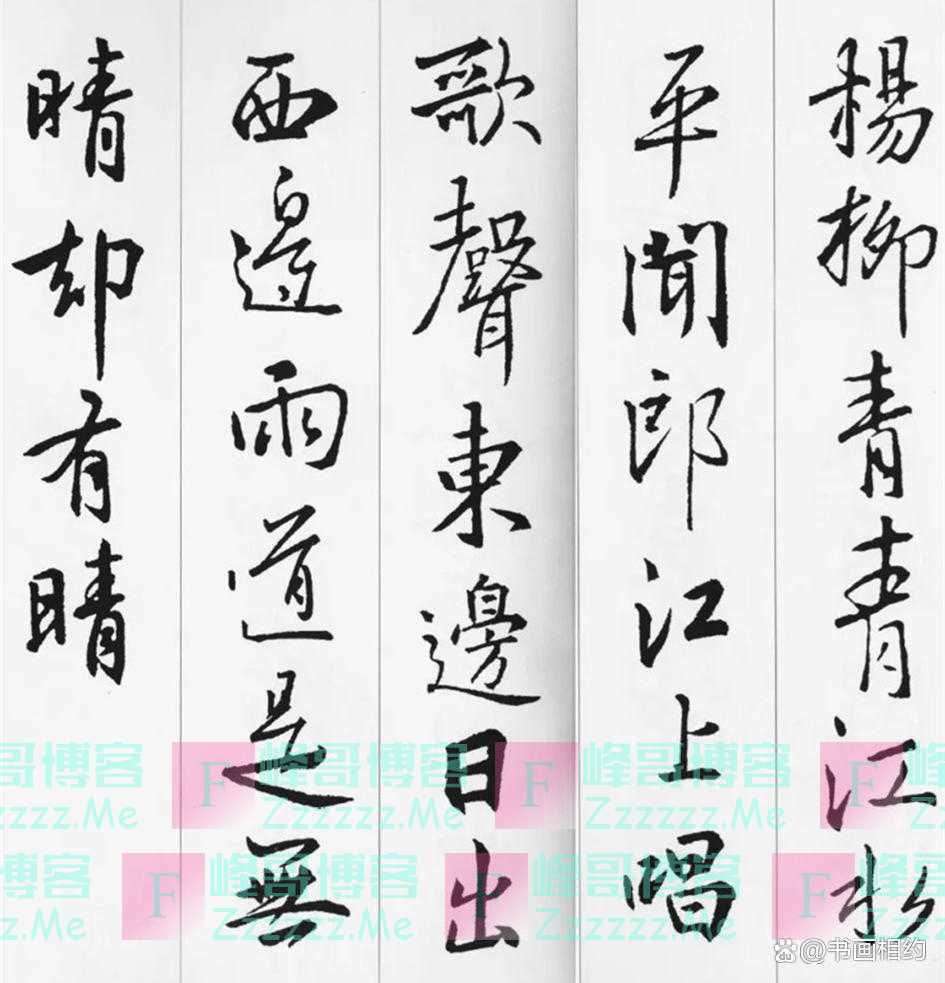 楊柳青青江水
平聞郎江上唱
歌聲東邊日出
西邊雨道是無
晴却有晴
峰哥博客 F 峰哥博客 F 峰哥博客
Zzzzzz.Me Zzzzzz.Me Zzzzzz.Me
峰哥博客 F 峰哥博客 F 峰哥博客 F
Zzzzzz.Me Zzzzzz.Me Zzzzzz.Me
@书画相约